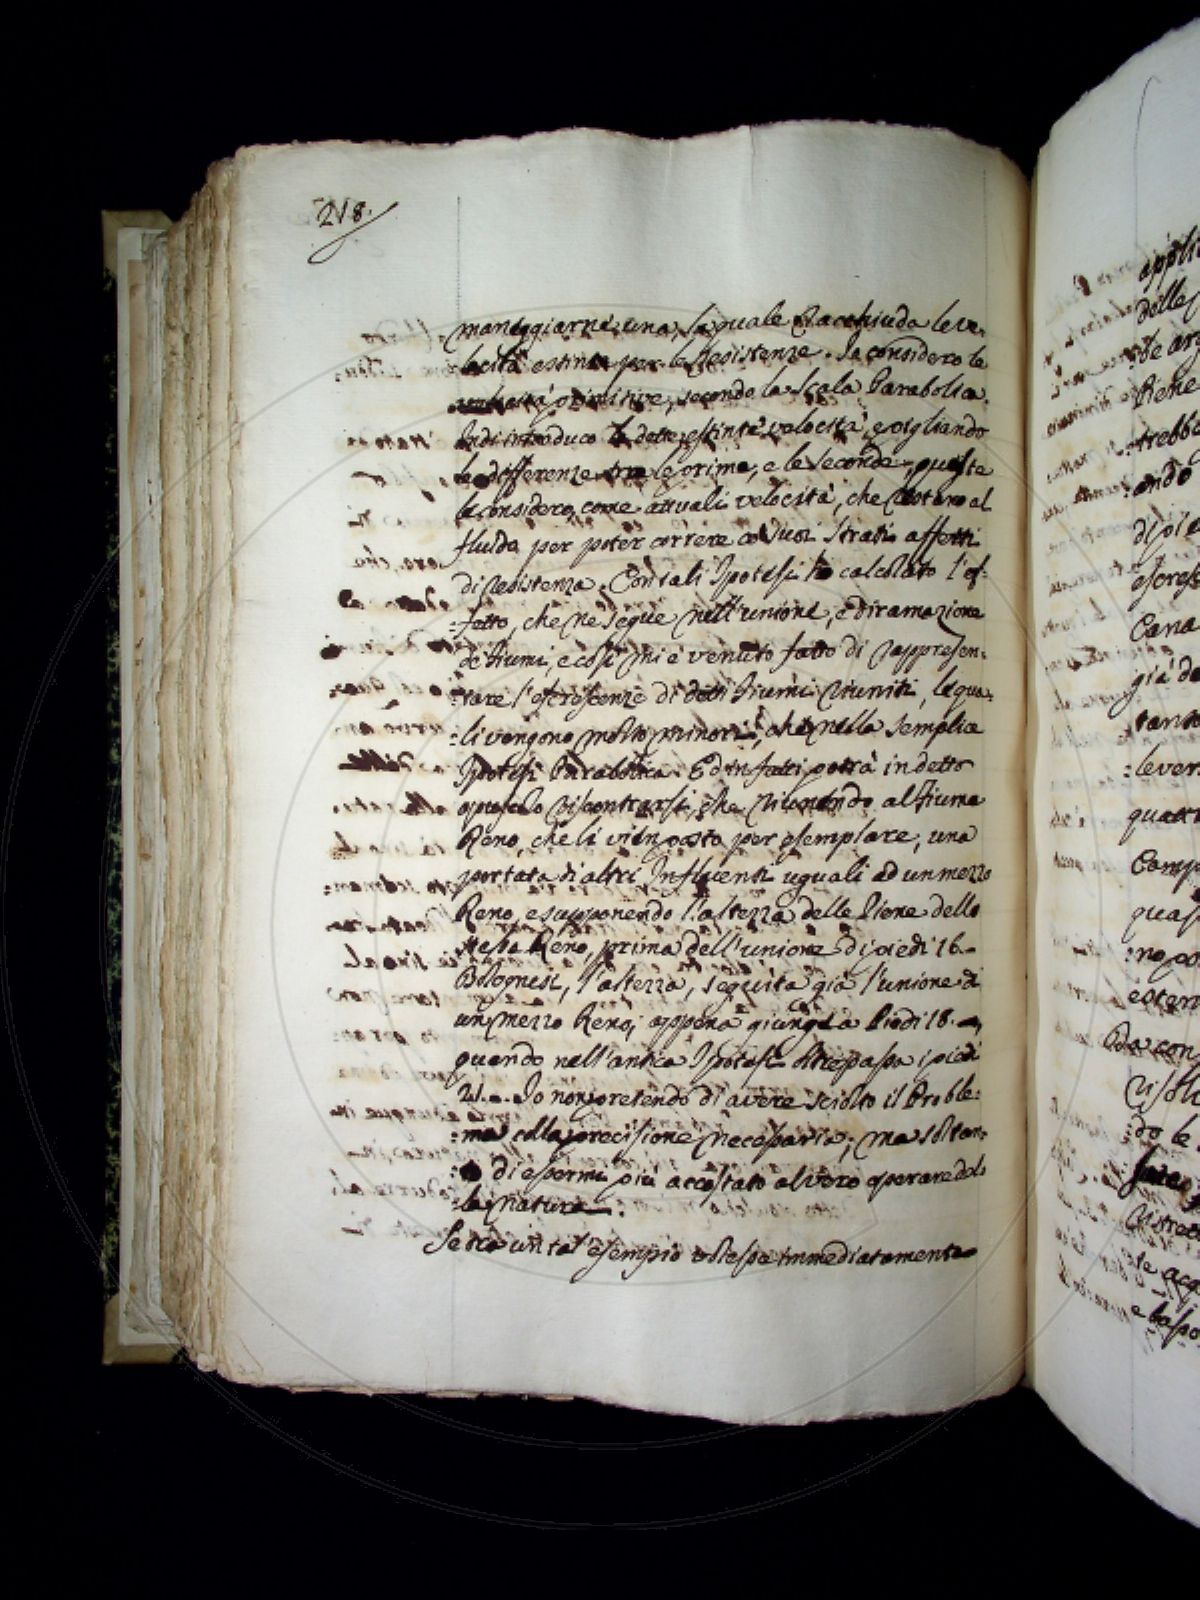 218.
maneggiarne una, la quale racchiuda le ve-
:locità estinte per le resistenze. Io considero le
velocità primitive, secondo la Scala Parabolica.
Indi introduco le dette estinte velocità, e pigliando
le differenze tra le prime, e le seconde, queste
le considero, come attuali velocità, che restano al
fluido per poter correre co' suoi strati affetti
di resistenza. Con tali Ipotesi ho calcolato l'ef-
:fetto, che ne segue nell'unione, e diramazione
de' fiumi, e così mi è venuto fatto di rappresen-
:tare l'escrescenze di detti fiumi riuniti, le qua-
:li vengono molto minori, che nella semplice
Ipotesi Parabolica. Ed infatti potrà in detto
opuscolo riscontrarsi, che riunendo al fiume
Reno, che li vien posto per esemplare, una
portata di altri Influenti uguali ad un mezzo
Reno, e supponendo l'altezza delle Piene dello
stesso Reno, prima dell'unione di piedi 16.
Bolognesi, l'altezza, seguita già l'unione di
un mezzo Reno, appena giunge a Piedi 18.
quando nell'antica Ipotesi oltrepassa i piedi
21. Io non pretendo di avere sciolto il Proble-
:ma colla precisione necessaria; ma soltan-
di essermi più accostato al vero operare del-
:la natura.
Se un tal esempio volesse immediatamente
appli
delle
Piene
:trebbe
:ando
di poi
escres
Cana
già de
tanto
:lever
quattr
Camp
quas
:no po
esten
con
risolu
:do le
e basso